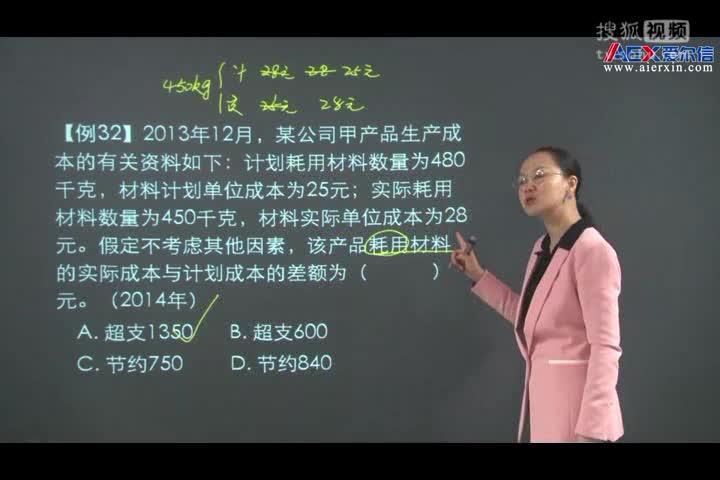 搜狐视频
AEX爱尔信
www.aierxin.com
450kg 计 28元 28 25元
实 25元 28元
【例32】2013年12月，某公司甲产品生产成
本的有关资料如下：计划耗用材料数量为480
千克，材料计划单位成本为25元；实际耗用
材料数量为450千克，材料实际单位成本为28
元。假定不考虑其他因素，该产品耗用材料
的实际成本与计划成本的差额为（ ）
元。（2014年）
A. 超支1350 B. 超支600
C. 节约750 D. 节约840